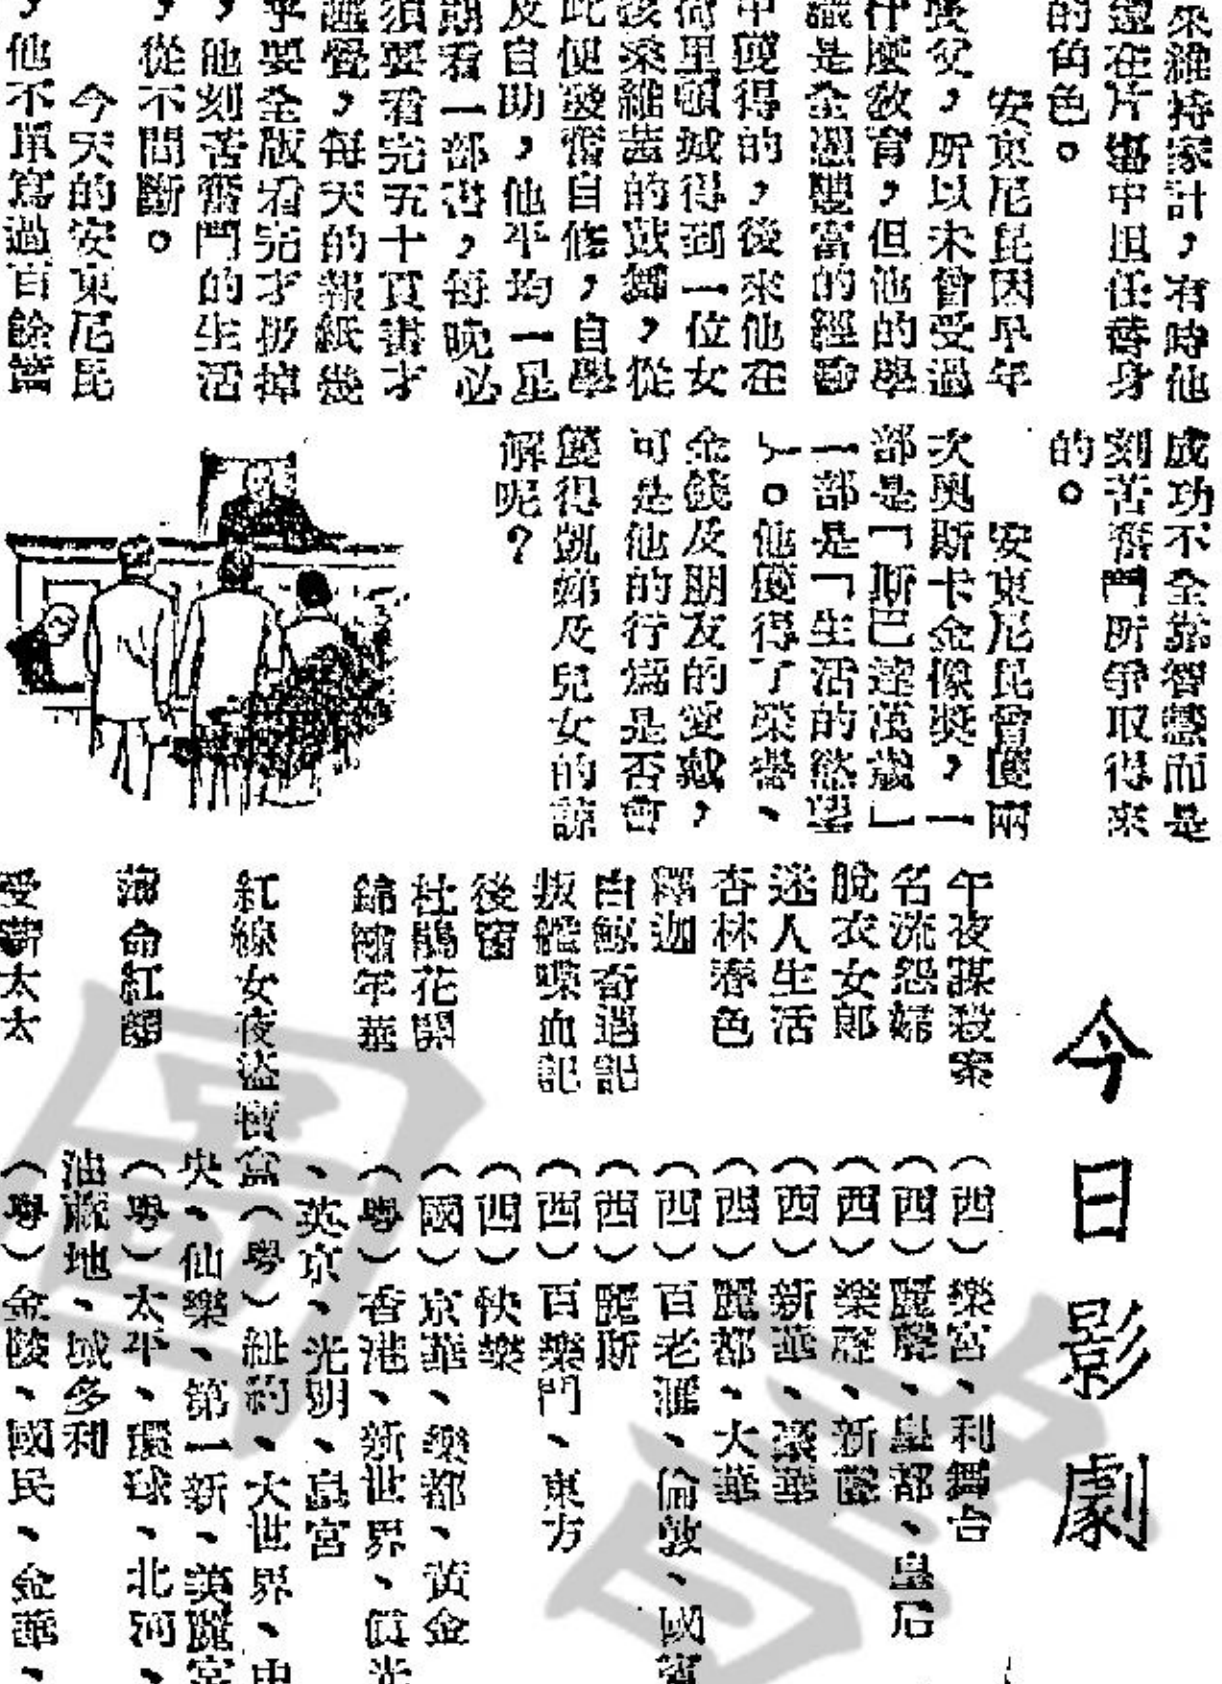 來維持家計，有時他
還在片場中担任替身
的角色。
安東尼昆因早年
喪父，所以未曾受過
什麼敎育，但他的學
識是全憑豐富的經驗
中獲得的，後來他在
荷里頓城得到一位女
演桑維茜的鼓舞，從
此便發奮自修，自學
及自助，他平均一星
期看一部書，每晚必
須要看完五十頁書才
睡覺，每天的報紙幾
乎要全版看完才扔掉
，他刻苦奮鬥的生活
，從不間斷。
今天的安東尼昆
，他不單寫過百餘篇
成功不全靠智慧而是
刻苦奮鬥所爭取得來
的。
安東尼昆曾獲兩
次奧斯卡金像獎，一
部是「斯巴達萬歲」
一部是「生活的慾望
」。他獲得了榮譽、
金錢及朋友的愛戴，
可是他的行爲是否會
獲得凱絲及兒女的諒
解呢？
今日影劇
午夜謀殺案（西）樂宮、利舞台
名流怨婦（西）麗聲、皇都、皇后
脫衣女郎（西）樂聲、新聲
迷人生活（西）新華、豪華
杏林春色（西）麗都、大華
釋迦（西）百老滙、倫敦、國賓
白鯨奇遇記（西）麗斯
叛艦喋血記（西）百樂門、東方
後窗（西）快樂
杜鵑花開（國）京華、樂都、黃金
錦繡年華（粵）香港、新世界、眞光
、英京、光明、皇宮
紅線女夜盜寶盒（粵）紐約、大世界、中
央、仙樂、第一新、美麗宮
薄命紅顏（粵）太平、環球、北河、
油蔴地、域多利
受薪太太（粵）金陵、國民、金華、